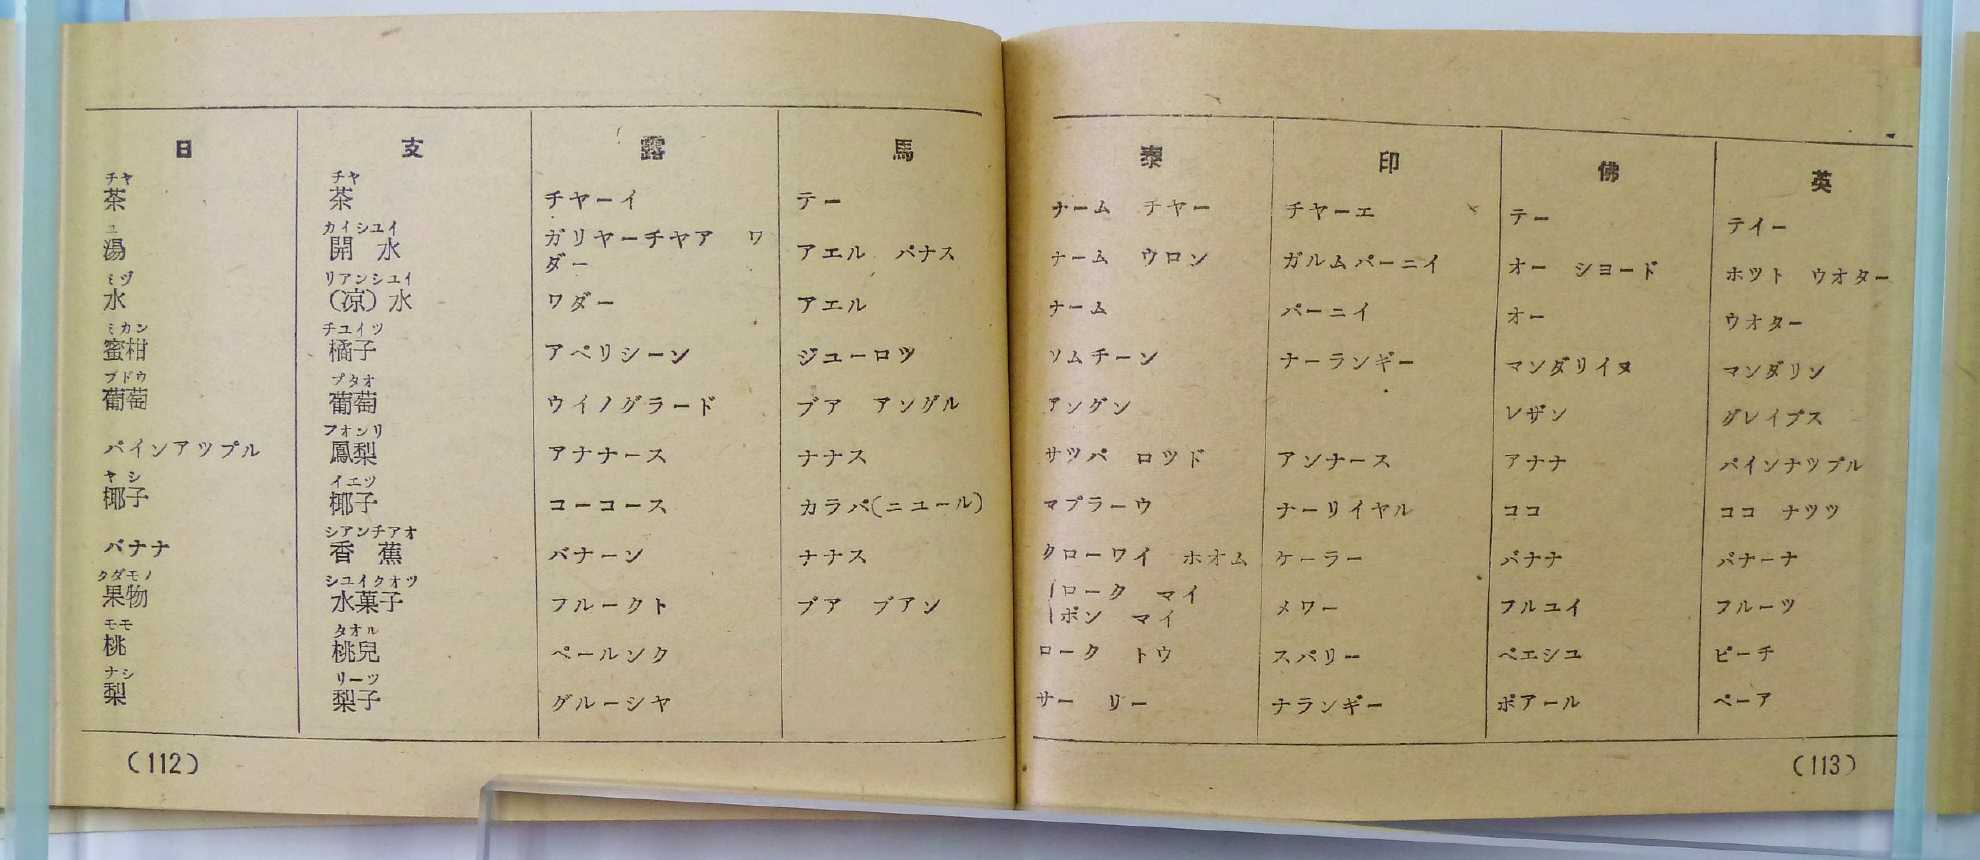 日 支 露 馬
チヤ チヤ
茶 茶 チヤーイ テー
ユ カイシユイ
湯 開水 ガリヤーチヤア ワダー アエル パナス
ミヅ リアンシユイ
水 (凉)水 ワダー アエル
ミカン チユイツ
蜜柑 橘子 アペリシーン ジユーロツ
ブドウ プタオ
葡萄 葡萄 ウイノグラード ブア アングル
フオンリ
パインアツプル 鳳梨 アナナース ナナス
ヤシ イエツ
椰子 椰子 コーコース カラパ(ニユール)
シアンチアオ
バナナ 香蕉 バナーン ナナス
クダモノ シユイクオツ
果物 水菓子 フルークト ブア ブアン
モモ タオル
桃 桃兒 ペールンク
ナシ リーツ
梨 梨子 グルーシヤ
(112)
泰 印 佛 英
ナーム チヤー チヤーエ テー テイー
ナーム ウロン ガルムパーニイ オー シヨード ホツト ウオター
ナーム パーニイ オー ウオター
ソムチーン ナーランギー マンダリイヌ マンダリン
アングン レザン グレイプス
サツパ ロツド アンナース アナナ パインナツプル
マプラーウ ナーリイヤル ココ ココ ナツツ
クローワイ ホオム ケーラー バナナ バナーナ
ロータ マイ
ポン マイ メワー フルユイ フルーツ
ロータ トウ スパリー ペエシユ ピーチ
サー リー ナランギー ポアール ペーア
(113)